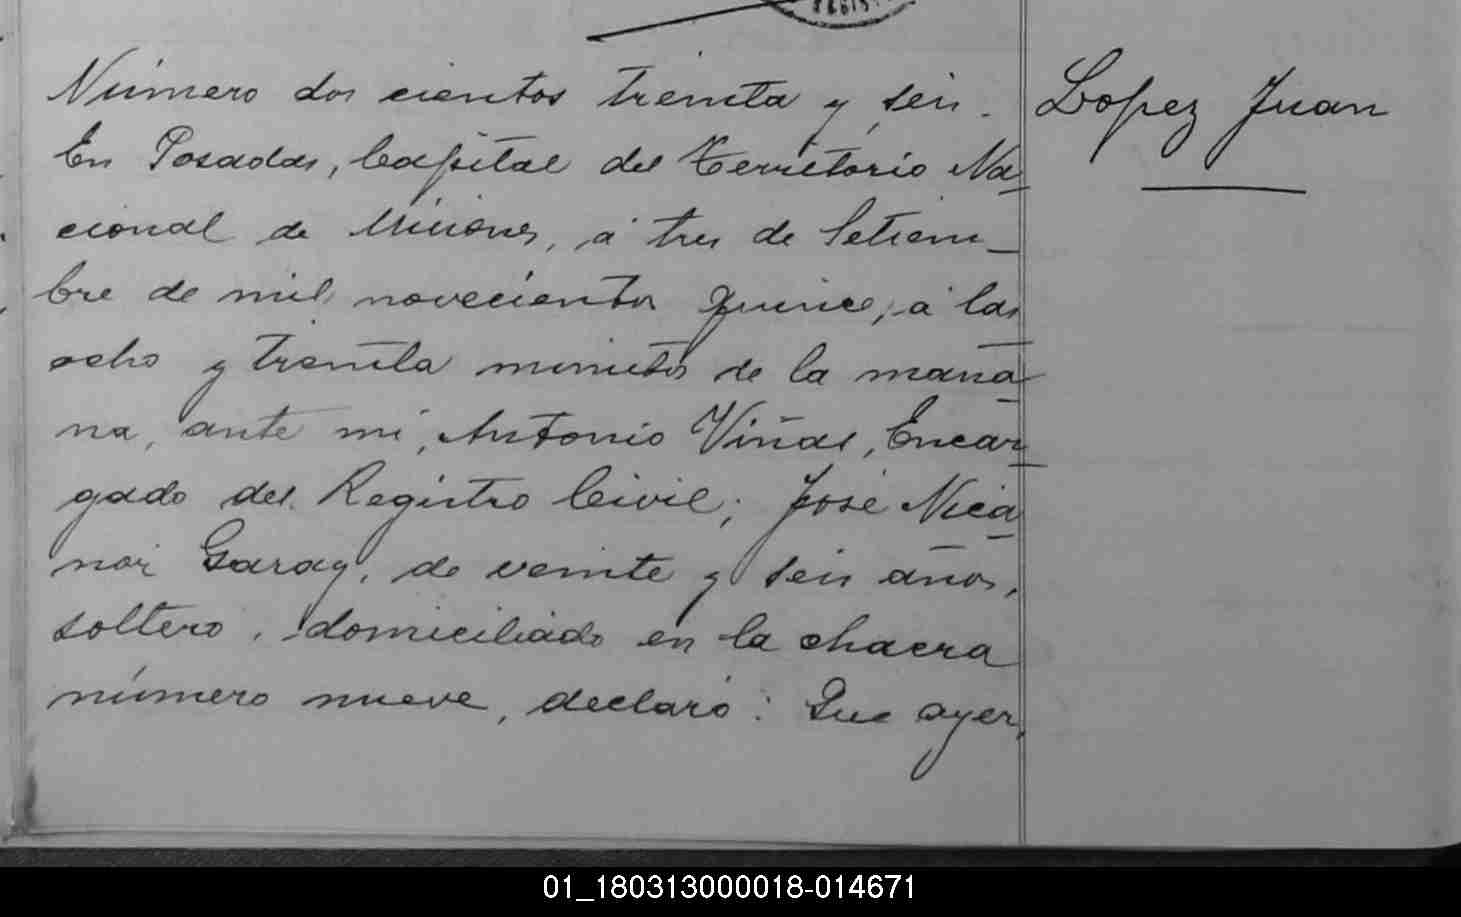 Número dos cientos treinta y seis.
Lopez Juan
En Posadas, Capital del Territorio Na
cional de Misiones, á tres de Setiem_
bre de mil novecientos quince, á las
ocho y treinta minutos de la maña
na, ante mi, Antonio Viñas, Encar
gado del Registro Civil; José Nica
nor Garay, de veinte y seis años,
soltero, domiciliado en la chacra
número nueve, declaró: Que ayer,
01_180313000018-014671